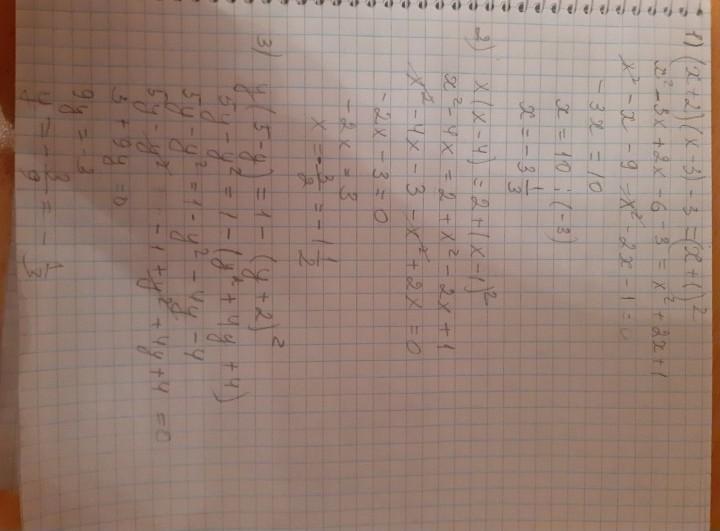 1) (x+2)(x-3)-3=(x+1)²
x²-3x+2x-6-3=x²+2x+1
x²-x-9-x²-2x-1=0
-3x=10
x=10:(-3)
x=-3 1/3
2) x(x-4)=2+(x-1)²
x²-4x=2+x²-2x+1
x²-4x-3-x²+2x=0
-2x-3=0
-2x=3
x=-3/2=-1 1/2
3) y(5-y)=1-(y+2)²
5y-y²=1-(y²+4y+4)
5y-y²=1-y²-4y-4
5y-y²-1+y²+4y+4=0
3+9y=0
9y=-3
y=-3/9=-1/3